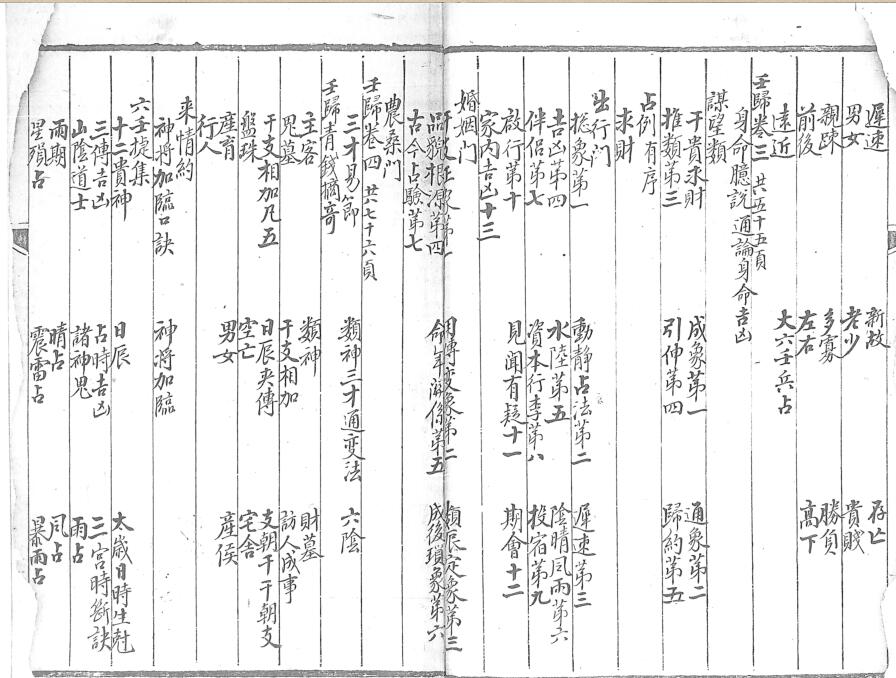 遲速 新故 存亡
男女 老少 貴賤
親疎 多寡 勝負
前後 左右 高下
遠近 大六壬兵占
壬歸卷三 共五十五頁
身命臆說通論身命吉凶
謀望類
干貴求財 成象第一 通象第二
推類第三 引伸第四 歸約第五
占例有序
求財
出行門
總象第一 動靜占法第二 遲速第三
吉凶第四 水陸第五 陰晴風雨第六
伴侶第七 資本行李第八 投宿第九
啟行第十 見聞有疑十一 期會十二
家內吉凶十三
婚姻門
用傳变象第二 類辰定象第三
品貌根源第四 命年演係第五 成後瑣象第六
古今占驗第七
農桑門
壬歸卷四 共六七十六頁
三才易節 類神三才通变法 六陰
壬歸青錢摘奇
主客 類神 財墓
鬼墓 干支相加 訪人成事
干支相加凡五 日辰夾傳 支朝干干朝支
盤珠 空亡 宅舍
産育 男女 産侯
行人
来情約
神將加臨口訣 神將加臨
六壬捷集
十二貴神 日辰 太歲日時生尅
三傳吉凶 占時吉凶 三宮時斷訣
山陰道士 諸神鬼 雨占
雨期 晴占 風占
星殞占 震雷占 暴雨占